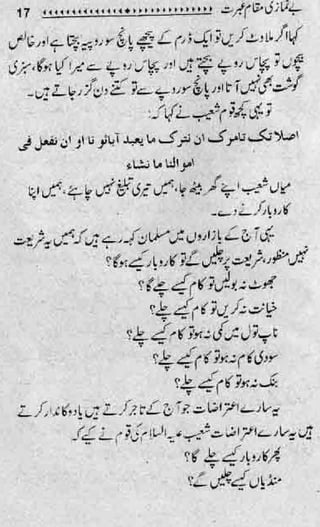 بے نمازی مقام عبرت 17
کہا اگر ملاوٹ کریں تو ایک ڈرم کے پیچھے پانچ سو روپیہ بچتا ہے اور خالص
بیچوں تو پچاس روپے بچتے ہیں اور پچاس روپے سے میرا کیا ہوگا، سبزی
گوشت بھی نہیں آتا اور پانچ سو روپے سے تو کتنے دن گزر جاتے ہیں۔
تو یہی کچھ قوم شعیب نے کہا کہ:
اصلاتک تامرک ان نترک ما یعبد آبائو نا او ان نفعل فی
اموالنا ما نشاء
میاں شعیب اپنے گھر بیٹھ جا، ہمیں تیری تبلیغ نہیں چاہئے، ہمیں اپنا
کاروبار کرنے دے۔
یہی آج کے بازاروں میں مسلمان کہہ رہے ہیں کہ ہمیں یہ شریعت
نہیں منظور، شریعت پر چلیں گے تو کاروبار کیسے ہوگا؟
جھوٹ نہ بولیں تو کام کیسے چلے گا؟
خیانت نہ کریں تو کام کیسے چلے؟
ناپ تول میں کمی نہ ہو تو کام کیسے چلے؟
سودی کام نہ ہو تو کام کیسے چلے؟
بنک نہ ہو تو کام کیسے چلے؟
یہ سارے اعتراضات جو آج کے تاجر کرتے ہیں یا دوکاندار کرتے
ہیں یہ سارے اعتراضات شعیب علیہ السلام کی قوم نے کیے کہ
پھر کاروبار کیسے چلے گا؟
منڈیاں کیسے چلیں گے؟